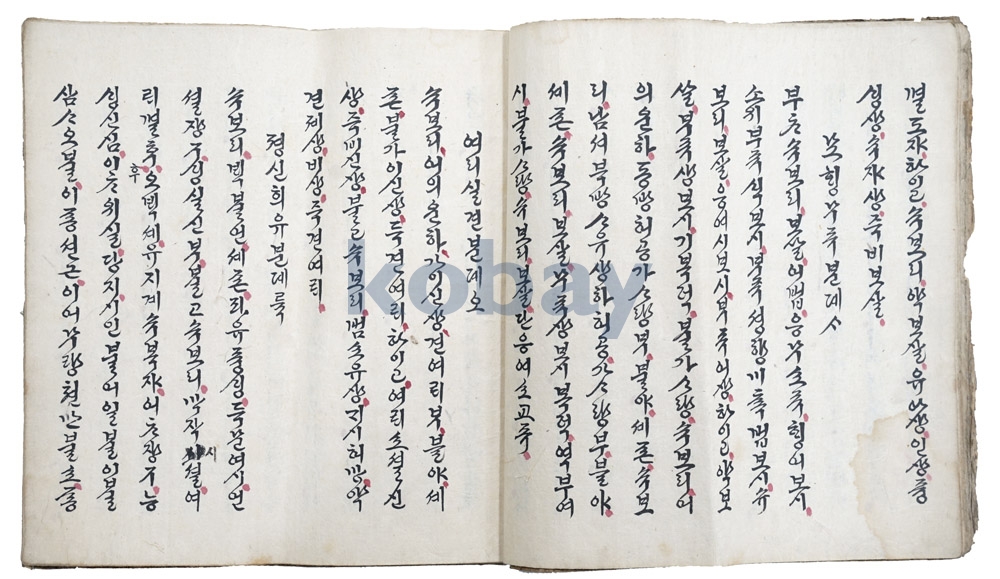 멸도쟈하이고슈보리약보살유아상인상즁
싱상슈쟈상즉비보살
묘힝무주분뎨사
부츠슈보리보살어법응무소주힝어보시
소위부주식보시부주셩향미촉법보시슈
보리보살응여시보시부주어상하이고약보
살부주상보시기복덕불가사량슈보리어
의운하동방허공가사량부불야셰존슈보
리남셔북방사유상하허공가사량부불야
셰존슈보리보살무주상보시복덕역부여
시불가사량슈보리보살단응여소교주
여리실견분뎨오
슈보리어의운하가이신상견여리부불야셰
존불가이신상득견여리하이고여리소셜신
상즉비신상불고슈보리범소유상지시허망약
견졔상비상즉견여리
졍신희유분뎨륙
슈보리백불언셰존파유즁싱득문여시언
셜쟝구싱실신부불고슈보리막작시셜여
리멸후오백셰유지계슈복쟈어츠쟝구능
싱신심이츠위실당지시인불어일불이불
삼사오불이죵션근이어무량쳔만불소죵
kobay